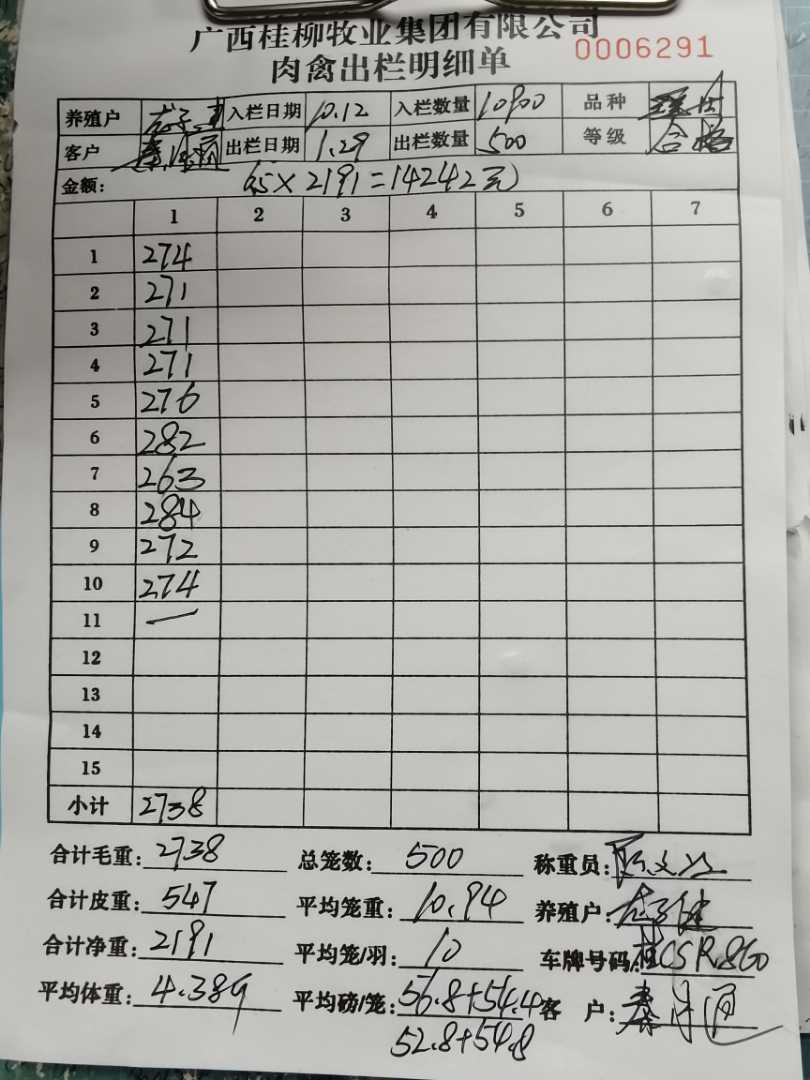 广西桂柳牧业集团有限公司
0006291
肉禽出栏明细单
养殖户 入栏日期 10.12 入栏数量 10900 品种
客户 出栏日期 1.29 出栏数量 500 等级 合格
金额: 6.5×2191=14242元
1 2 3 4 5 6 7
1 274
2 271
3 271
4 271
5 276
6 282
7 263
8 284
9 272
10 274
11 —
12
13
14
15
小计 2738
合计毛重: 2738 总笼数: 500 称重员:
合计皮重: 547 平均笼重: 10.94 养殖户:
合计净重: 2191 平均笼/羽: 10 车牌号码: 桂CSR860
平均体重: 4.389 平均磅/笼: 56.8+54.4 客 户:
52.8+54.8